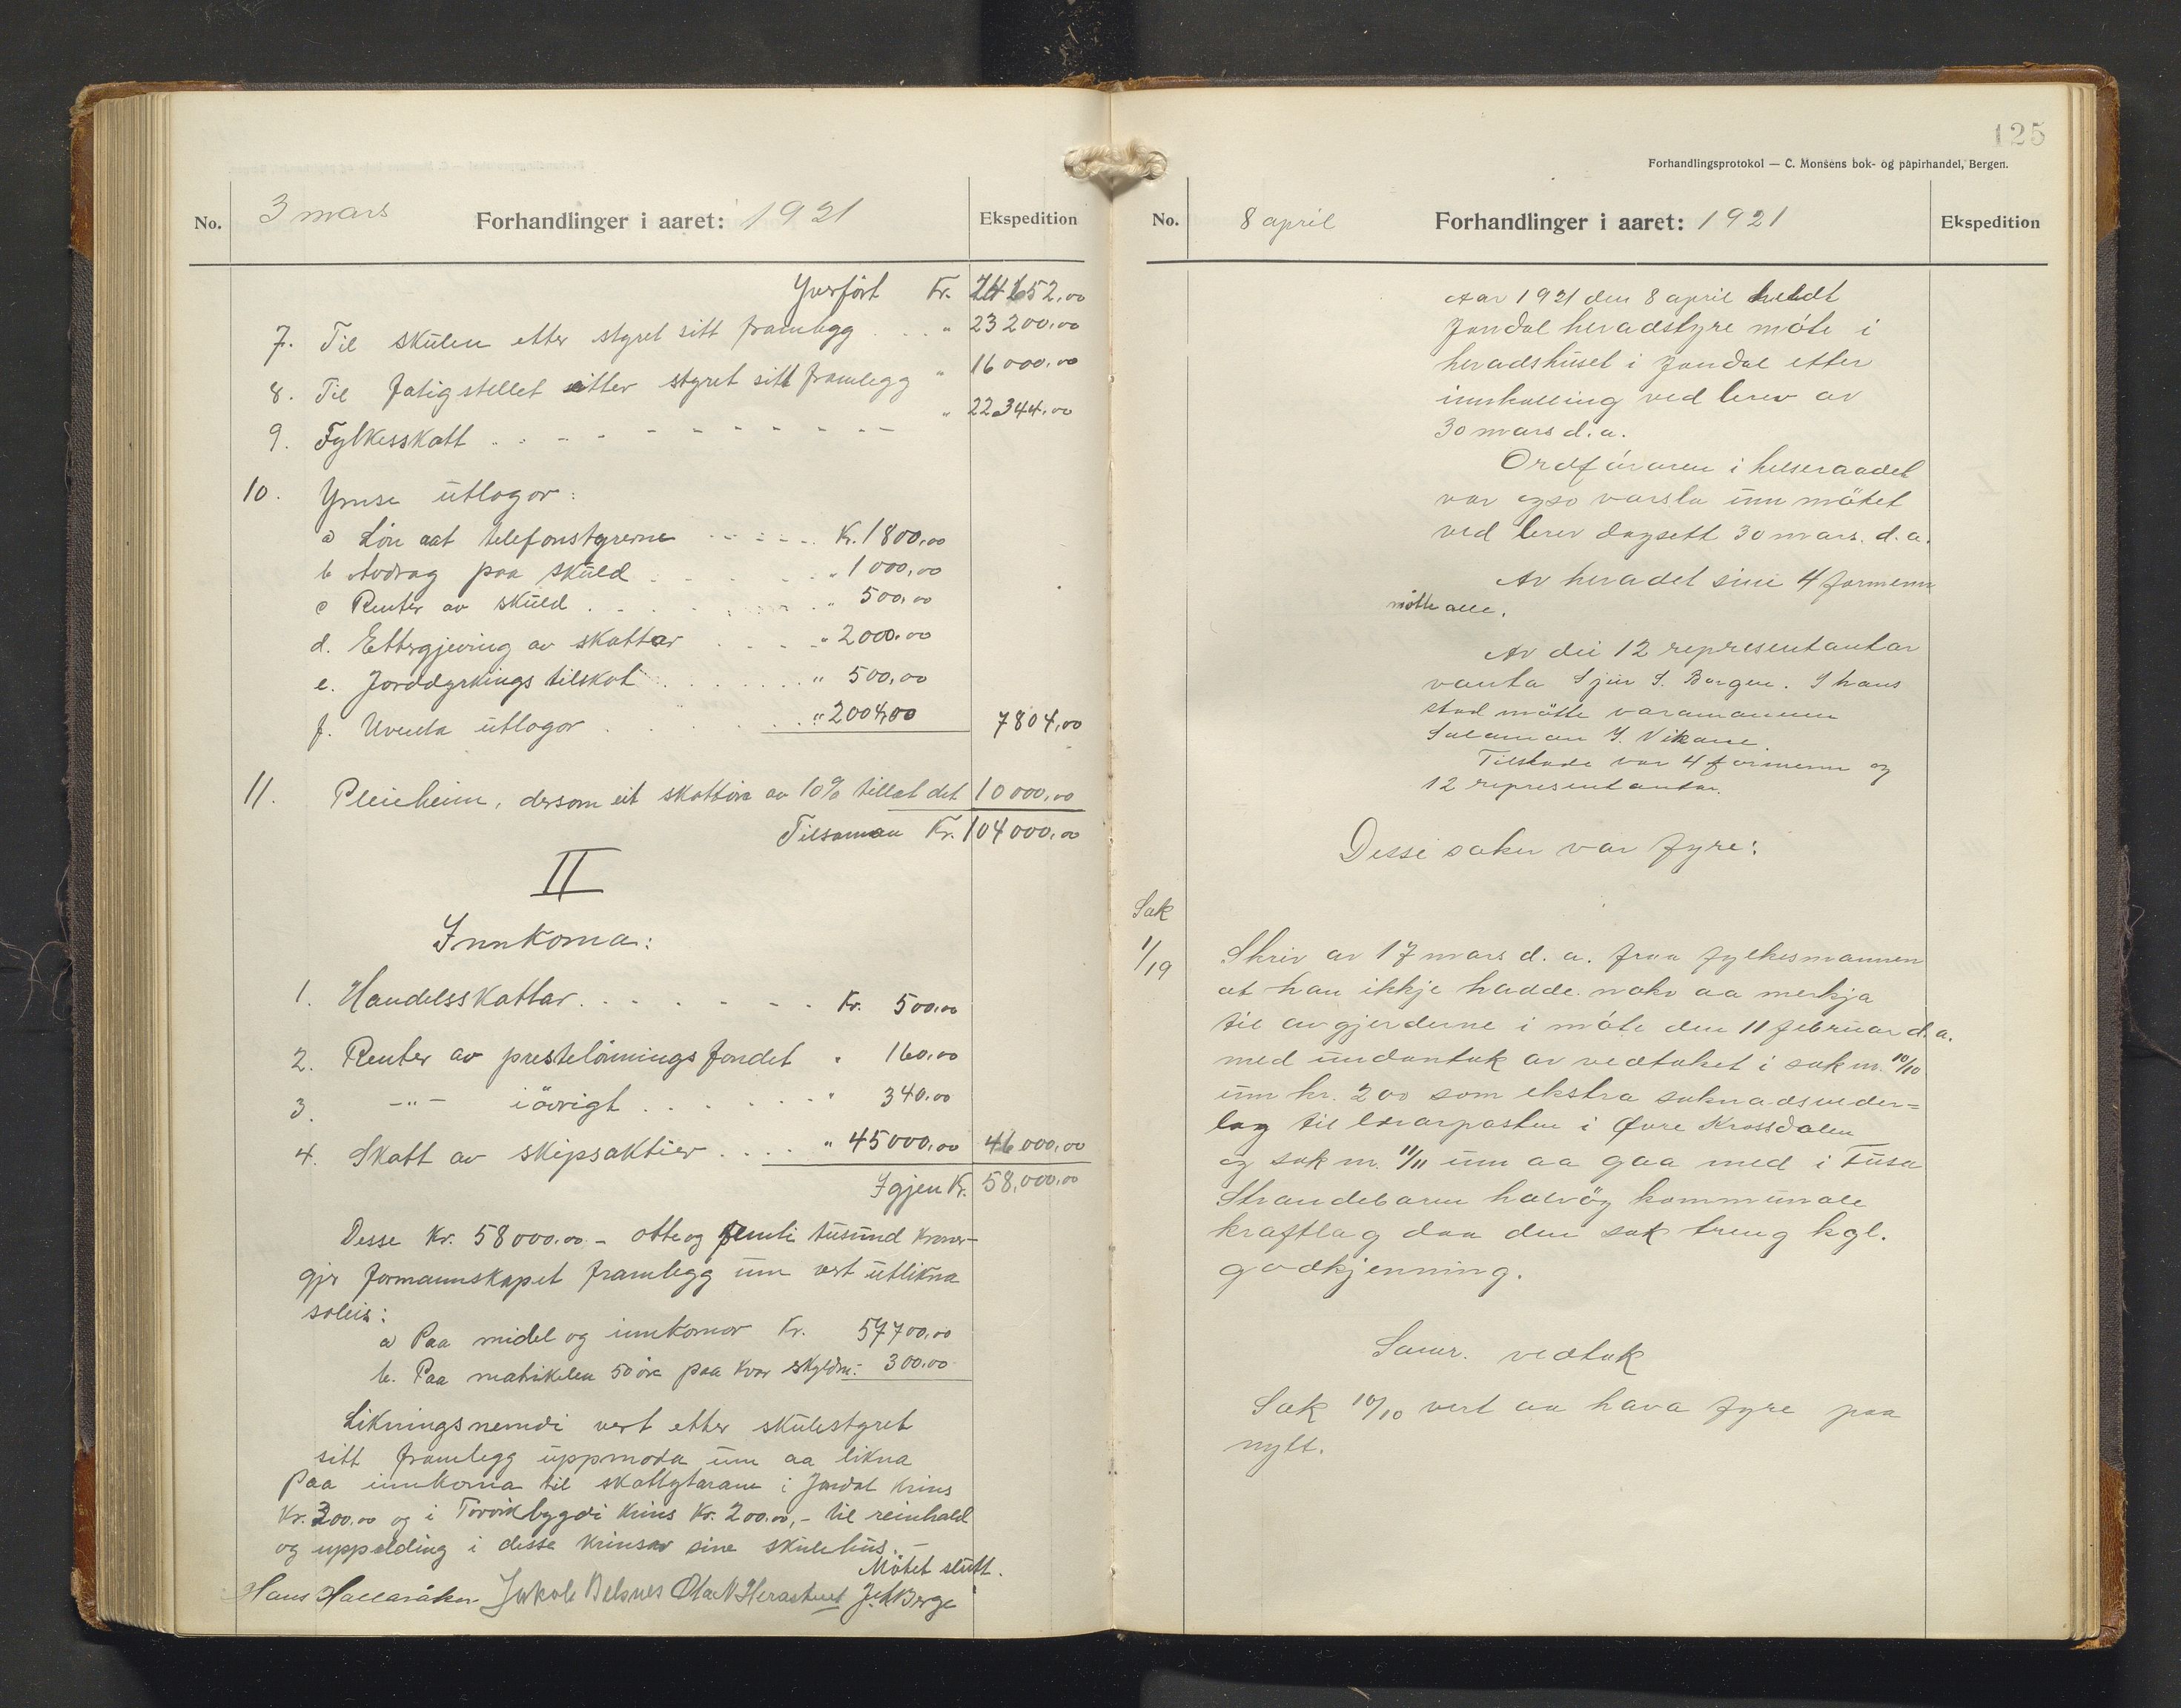 No.
3 mars
Forhandlinger i aaret: 1921
Ekspedition
Yverført Kr. 24652,00
7. Til skulen etter styret sitt framlegg . . . " 23200,00
8. Til fatigstellet etter styret sitt framlegg " 16000,00
9. Fylkesskatt . . . " 22344,00
10. Ymse utlogor:
a Løn aat telefonstyrerne . . . Kr. 1800,00
b Avdrag paa skuld . . . " 1000,00
c Renter av skuld . . . " 500,00
d. Ettergjeving av skattar . . . " 2000,00
e. Jorddyrkings tilskot . . . " 500,00
f. Uventa utlogor . . . " 2004,00 7804,00
11. Pleieheim, dersom eit skattøre av 10% tillet det 10000,00
Tilsaman Kr. 104000,00
II
Innkoma:
1. Handelsskattar . . . Kr. 500,00
2. Renter av prestelønningsfondet " 160,00
3. -"- iøvrigt . . . " 340,00
4. Skatt av skipsaktier . . . " 45000,00 46000,00
Igjen Kr. 58,000,00
Desse Kr. 58000,00 - otte og femti tusund kroner -
gjer formannskapet framlegg um vert utlikna
soleis:
a Paa midel og innkomor Kr. 57700,00
b. Paa matrikelen 50 øre paa kvar skyldm: 300,00
Likningsnemdi vert etter skulestyret
sitt framlegg uppmoda um aa likna
paa innkoma til skattytarane i Jondal krins
Kr. 300,00 og i Torvikbygdi krins Kr. 200,00,- til reinhald
og uppelding i desse krinsar sine skulehus. -
Møtet slutt.
Hans Hallaråker Jakob Belsnes Olav N Herastveit J. A. Berge
125
Forhandlingsprotokol — C. Monsens bok- og papirhandel, Bergen.
No.
8 april
Forhandlinger i aaret: 1921
Ekspedition
Aar 1921 den 8 april heldt
Jondal heradstyre møte i
heradshuset i Jondal etter
innkalling ved brev av
30 mars d.a.
Ordføraren i helseraadet
var ogso varsla um møtet
ved brev dagsett 30 mars. d.a.
Av heradet sine 4 formenn
møtte alle.
Av dei 12 representantar
vanta Sjur S. Bergen. I hans
stad møtte varamannen
Salamon J. Vikane.
Tilstade var 4 formenn og
12 representantar.
Desse saker var fyre:
Sak
1/19 Skriv av 17 mars d.a. fraa fylkesmannen
at han ikkje hadde noko aa merkja
til avgjerderne i møte den 11 februar d.a.
med undantak av vedtaket i sak nr. 10/10
um kr. 200 som ekstra soknadsveder=
lag til lærarposten i Øvre Krossdalen
og sak nr. 11/11 um aa gaa med i Fusa
Strandebarm halvøy kommunale
kraftlag daa den sak treng kgl.
godkjenning.
Samr. vedtak
Sak 10/10 vert aa hava fyre paa
nytt.